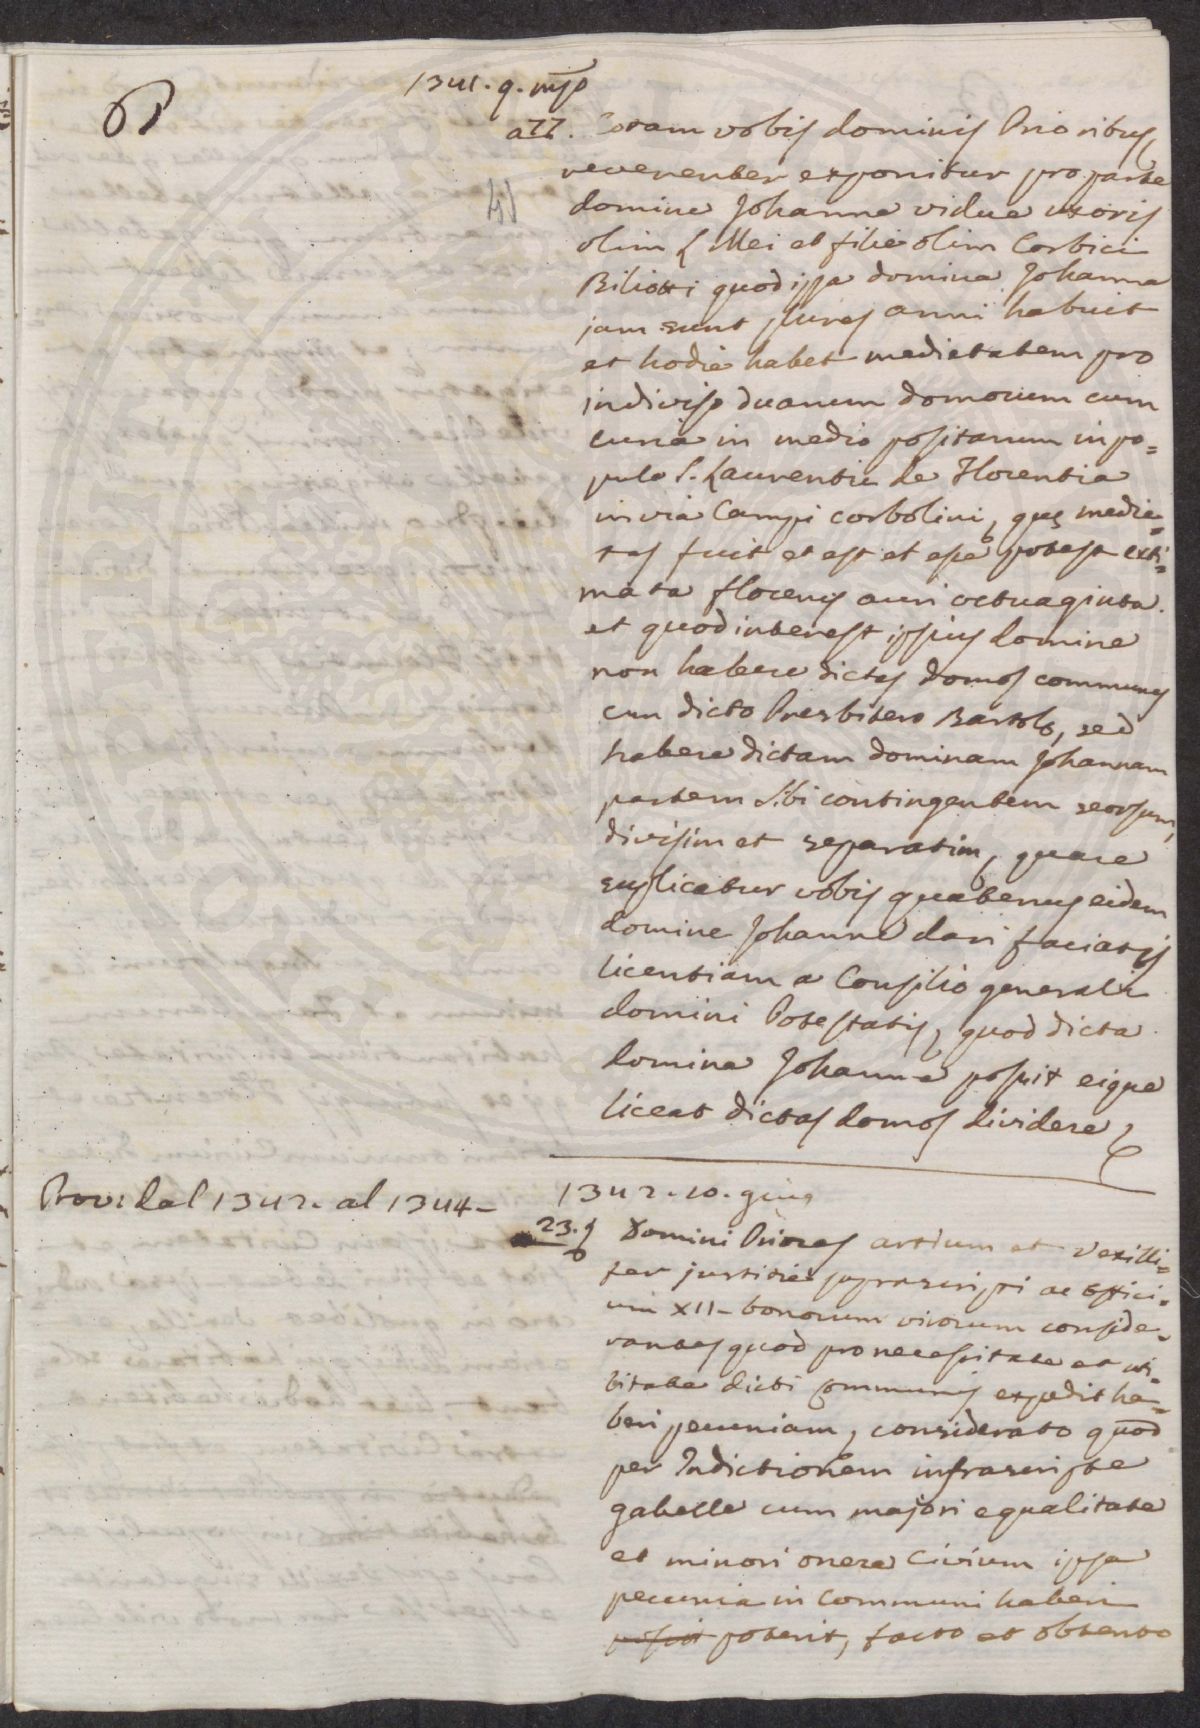 1341. 9. mżo
a 77. Coram vobis dominis Prioribus,
reverenter exponitur pro parte
domine Johanne vidue uxoris
olim L Mei et filie olim Corbici
Biliotti quod ipsa domina Johanna
jam sunt plures anni habuit
et hodie habet medietatem pro
indiviso duarum domorum cum
curia in medio positarum in po=
pulo S. Laurentii de Florentia
in via Campi corbolini, que medie=
tas fuit et est et esse potest exti=
mata florenis auri octuaginta.
et quod interest ipsius domine
non habere dictas domos communes
cum dicto Presbitero Bartolo, sed
habere dictam dominam Johannam
partem sibi contingentem seorsum,
divisim et separatim, quare
suplicatur vobis quatenus eidem
domine Johanne dari faciatis
licentiam a Consilio generali
domini Potestatis, quod dicta
domina Johanna possit eique
liceat dictas domos dividere,
Prov: dal 1342. al 1344-
1342. 10. giug
23. Domini Priores artium et Vexilli=
fer justitie suprascripti ac Offici=
um XII- bonorum virorum conside=
rantes quod pro necessitate et uti=
litate dicti Communis expedit ha=
beri pecuniam, considerato quod
per Indictionem infrascripte
gabelle cum majori equalitate
et minori onere Civium ipsa
pecunia in Communi haberi
possit poterit, facto et obtento